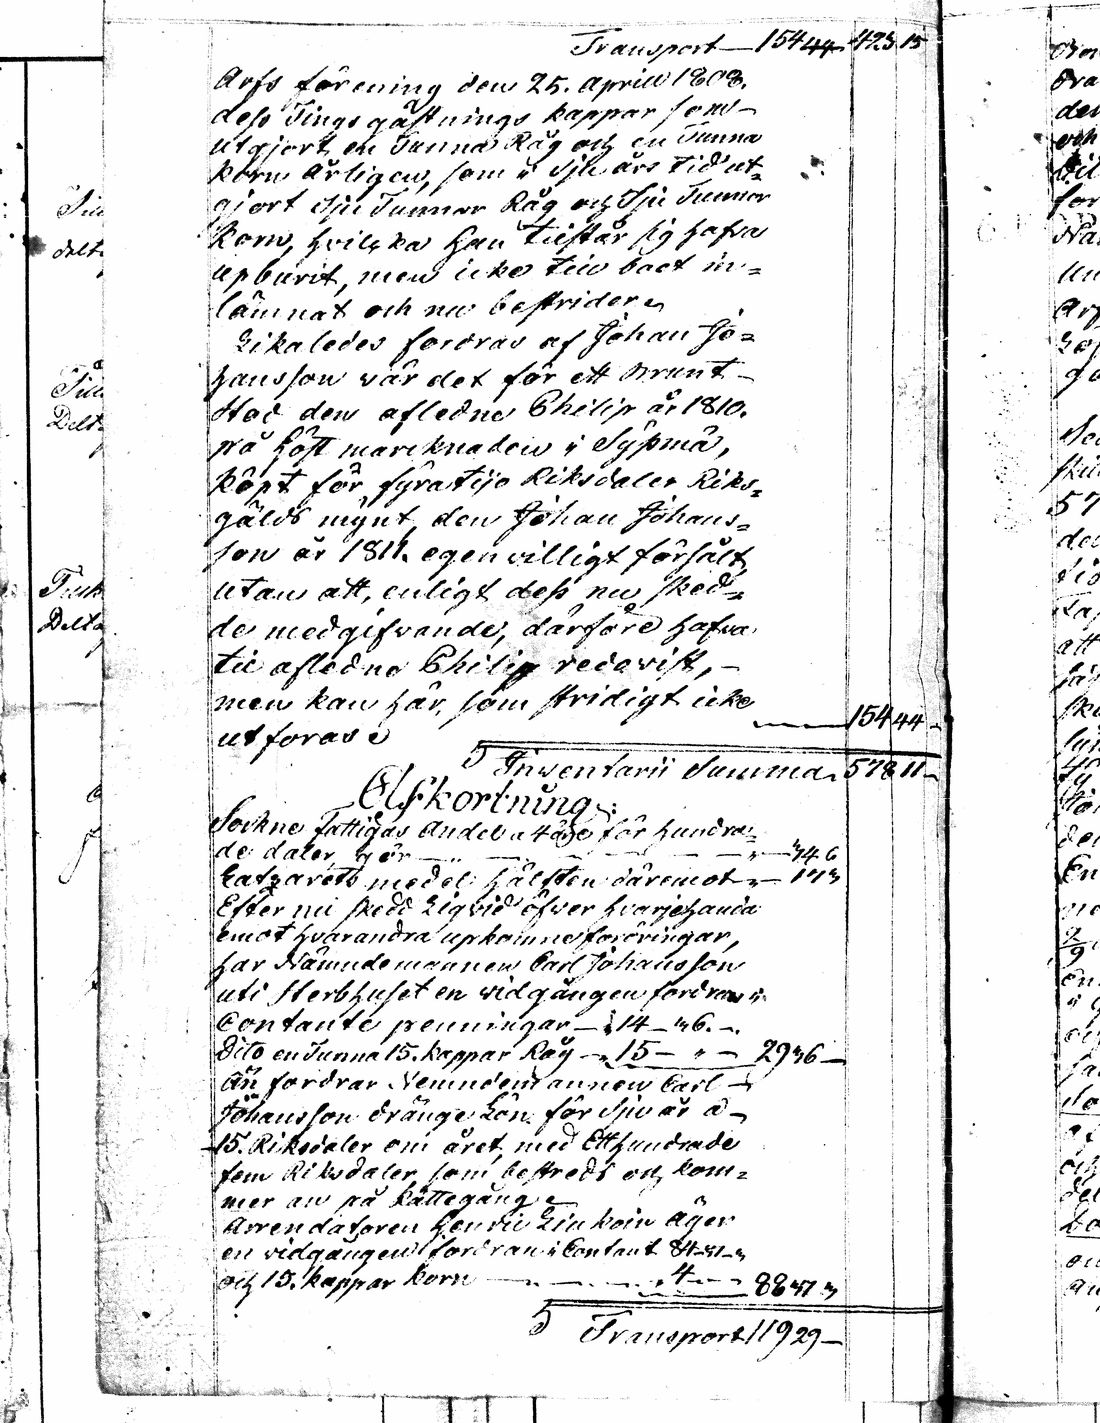 Transport — 154 44 423 15
Arfs förening den 25. Aprill 1808.
dess Tings gästnings kappar som
utgjort en Tunna Råg och en Tunna
korn Årligen, som i Sju års tid ut=
gjort Sju Tunnor Råg och Sju Tunnor
Korn, hvilcka han tilstår sig hafva
upburit, men icke till boet in=
lämnat och nu bestrider
Likaledes fordras af Johan Jo=
hansson wärdet för ett Brunt
Sto den afledne Philip år 1810.
på höst marcknaden i Sysmä,
köpt för fyratijo Riksdaler Riks=
gälds mynt, den Johan Johans=
son år 1811. egenvilligt försålt,
utan att, enligt dess nu sked=
de medgifvande, därföre hafva
till afledne Philip redovist, —
men kan här, som stridigt icke
utföras — 154 44 —
Inventarii Summa 578 11 —
Afkortning:
Sockne Fattigas Andel för hundra=
de daler, gör — 3 46
Lazaretts medel hälften däremot — 1 43
Efter nu skedd Liqvid öfwer hvarjehanda
emot hvarandra upkomne fordringar,
har Nämndemannen Carl Johansson
uti Sterbhuset en vidgången fordran i
Contante penningar — 14 — 36. —
Dito en Tunna 15. kappar Råg — 15 — " — 29 36 —
Än fordrar Nemndemannen Carl
Johansson dränge Lön för Sju år a
15. Riksdaler om året, med Etthundrade
fem Riksdaler, som bestreds och kom=
mer an på Rättegång
Arrendatoren Henric Linkoin äger
en vidgången fordran i Contant 84
och 15. kappar Korn — 4 — 88
Transport 119 29 —